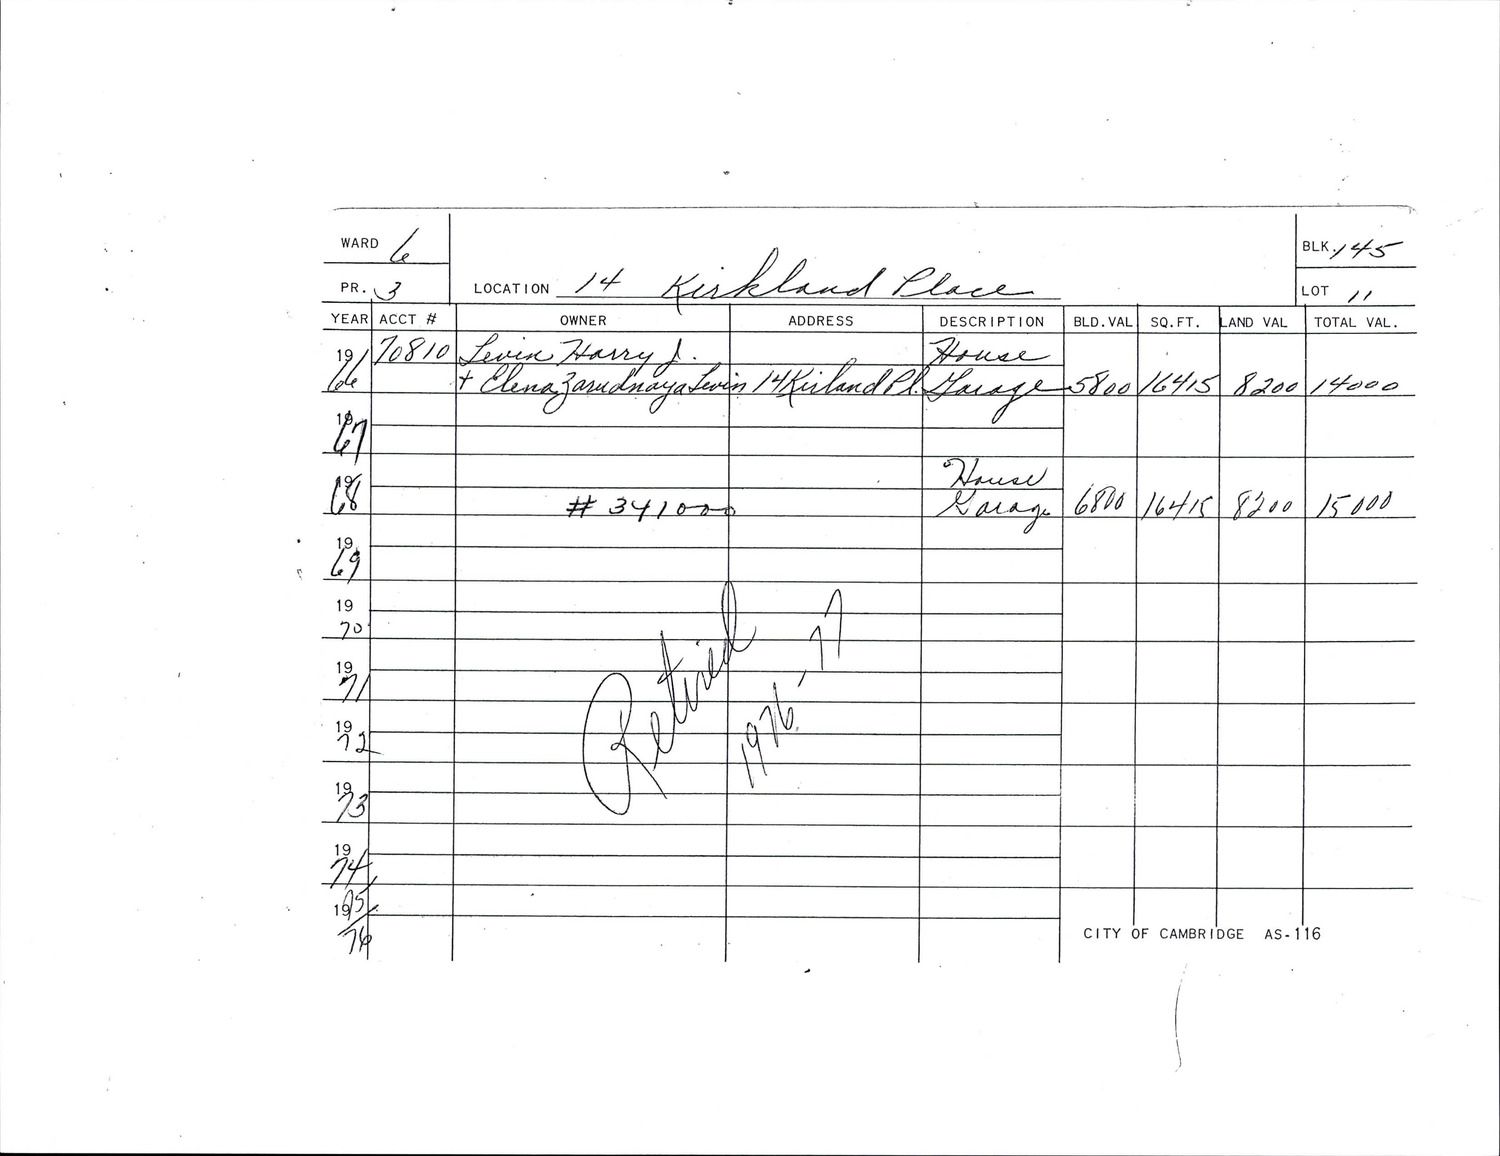 WARD 6
BLK. 145
PR. 3
LOCATION 14 Kirkland Place
LOT 11
YEAR ACCT # OWNER ADDRESS DESCRIPTION BLD.VAL SQ.FT. LAND VAL TOTAL VAL.
19 70810 Levin Harry J. House
66 + Elena Zarudnaya Levin 14 Kirland Pl. Garage 5800 16415 8200 14000
19
67
19 House
68 # 341000 Garage 6800 16415 8200 15000
19
69
19
70
19
71
19
72
19
73
19
74
19 75
76
Retired
1976-77
CITY OF CAMBRIDGE AS-116